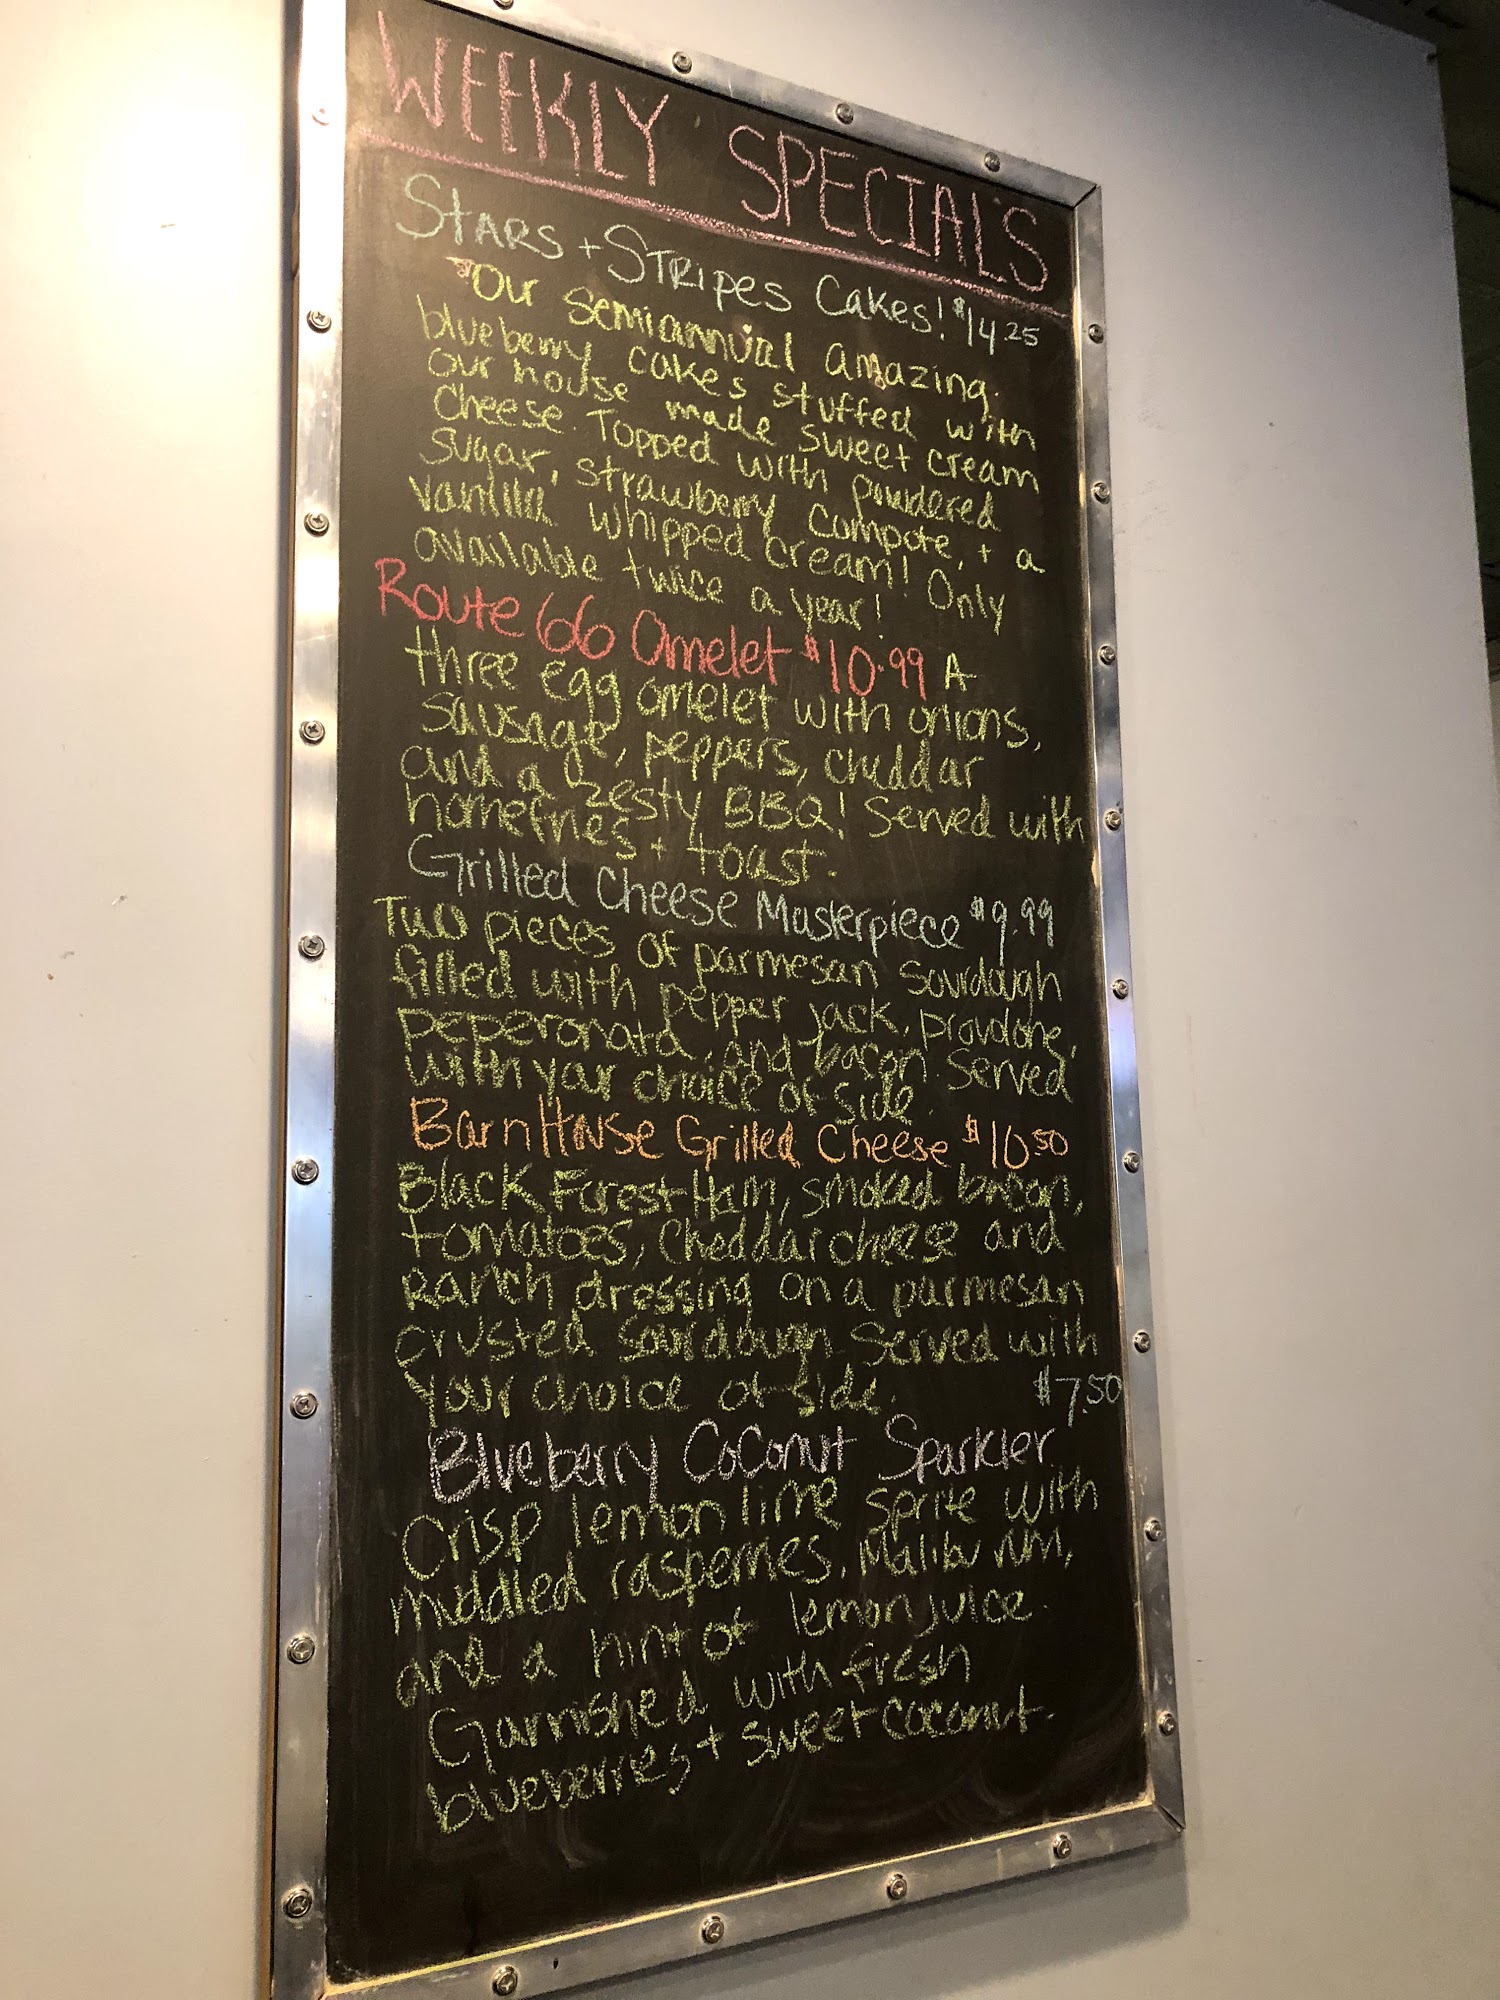 WEEKLY SPECIALS
STARS + STRIPES CAKES! $14.25
Our semiannual amazing
blueberry cakes stuffed with
our house made sweet cream
cheese. Topped with powdered
sugar, strawberry compote, + a
vanilla whipped cream! Only
available twice a year!
Route 66 Omelet $10.99 A
three egg omelet with onions,
sausage, peppers, cheddar
and a zesty BBQ! Served with
homefries + toast.
Grilled Cheese Masterpiece $9.99
Two pieces of parmesan sourdough
filled with pepper jack, provolone,
peperonata, and bacon. Served
with your choice of side.
BarnHouse Grilled Cheese $10.50
Black Forest Ham, smoked bacon,
tomatoes, cheddar cheese and
Ranch dressing on a parmesan
crusted sourdough. Served with
your choice of side. $7.50
Blueberry Coconut Sparkler
Crisp lemon lime sprite with
muddled raspberries, Malibu rum,
and a hint of lemon juice.
Garnished with fresh
blueberries + sweet coconut.